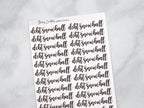 debt snowball debt snowball
debt snowball debt snowball
debt snowball debt snowball
debt snowball debt snowball
debt snowball debt snowball
debt snowball debt snowball
debt snowball debt snowball
debt snowball debt snowball
debt snowball debt snowball